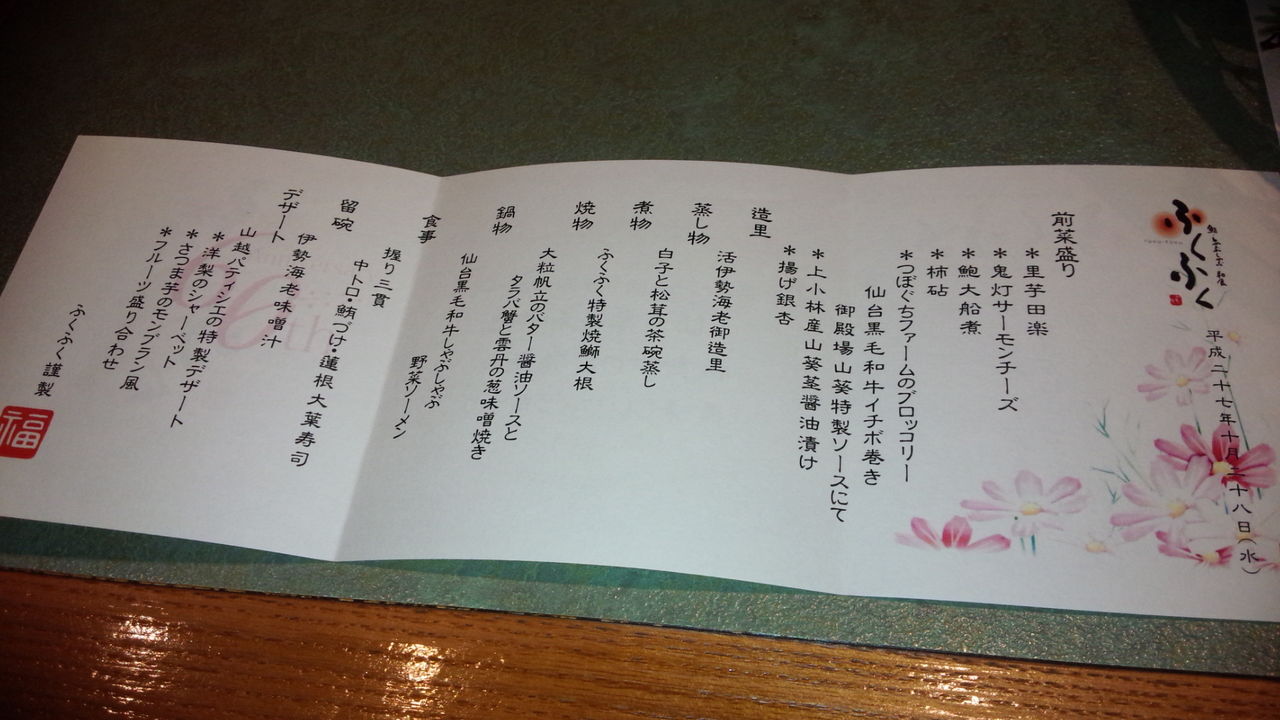 ふくふく
平成二十七年十月二十八日(水)
前菜盛り
*里芋田楽
*鬼灯サーモンチーズ
*鮑大船煮
*柿砧
*つぼぐちファームのブロッコリー
仙台黒毛和牛イチボ巻き
御殿場山葵特製ソースにて
*上小林産山葵茎醤油漬け
*揚げ銀杏
造里
活伊勢海老御造里
蒸し物
白子と松茸の茶碗蒸し
煮物
ふくふく特製焼鰤大根
焼物
大粒帆立のバター醤油ソースと
タラバ蟹と雲丹の葱味噌焼き
鍋物
仙台黒毛和牛しゃぶしゃぶ
野菜ソーメン
食事
握り三貫
中トロ・鮪づけ・蓮根大葉寿司
留碗
伊勢海老味噌汁
デザート
山越パティシエの特製デザート
*洋梨のシャーベット
*さつま芋のモンブラン風
*フルーツ盛り合わせ
ふくふく謹製
福